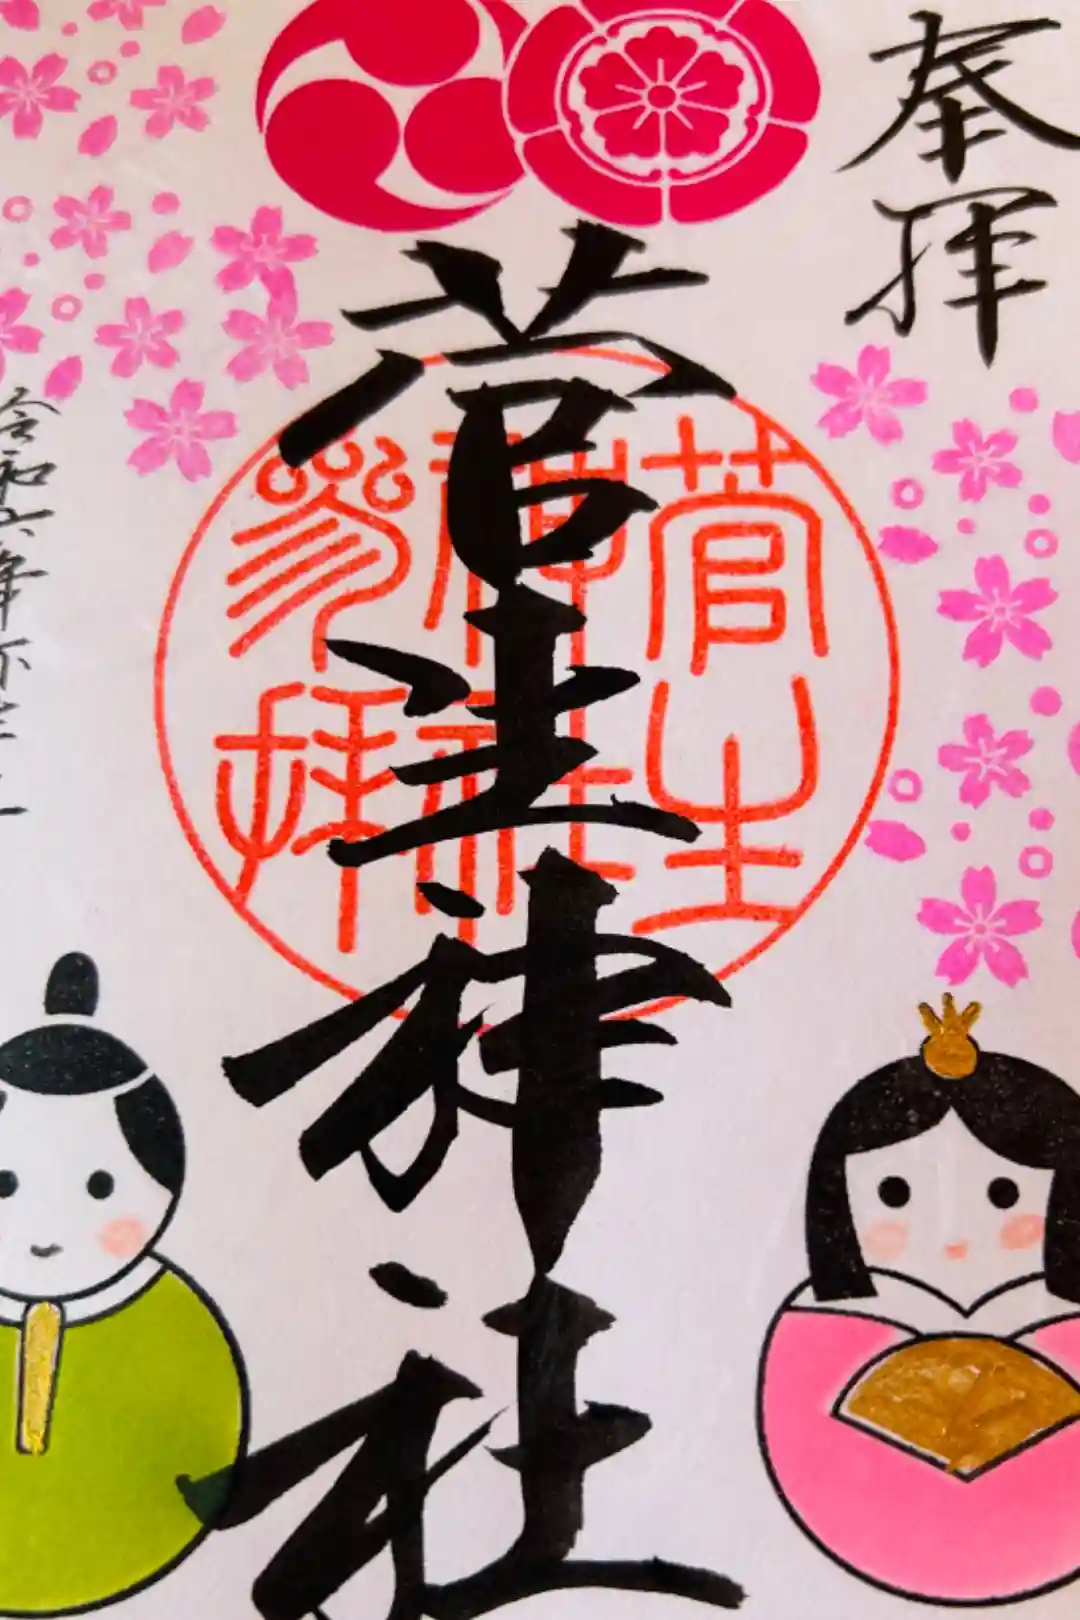 奉拝
菅生神社
菅生
神社
參拝
令和六年弥生